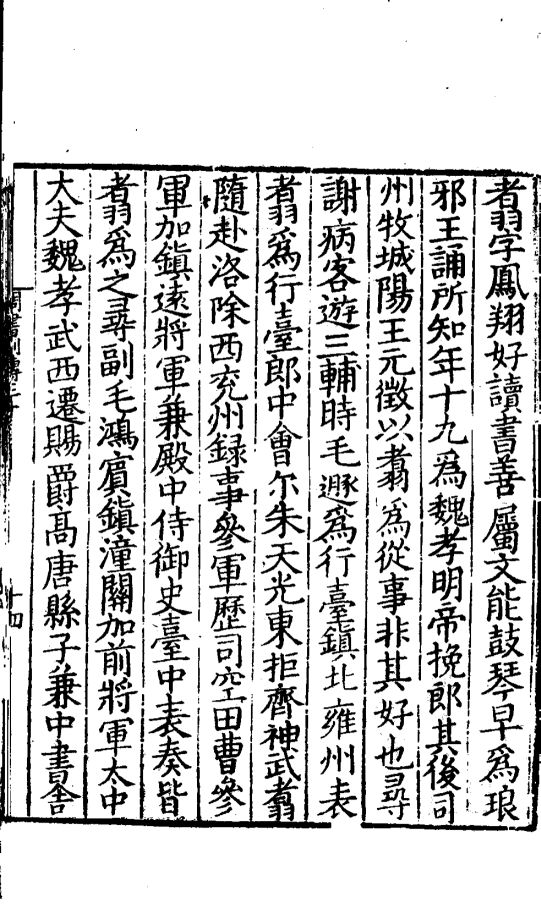 翥字鳳翔好讀書善屬文能鼓琴早爲琅
邪王誦所知年十九爲魏孝明帝挽郎其後司
州牧城陽王元徽以翥爲從事非其好也尋
謝病客遊三輔時毛遐爲行臺鎮北雍州表
翥爲行臺郎中會尒朱天光東拒齊神武翥
隨赴洛除西兖州録事參軍歷司空田曹參
軍加鎮遠將軍兼殿中侍御史臺中表奏皆
翥爲之尋副毛鴻賓鎮潼關加前將軍太中
大夫魏孝武西遷賜爵高唐縣子兼中書舍
十四